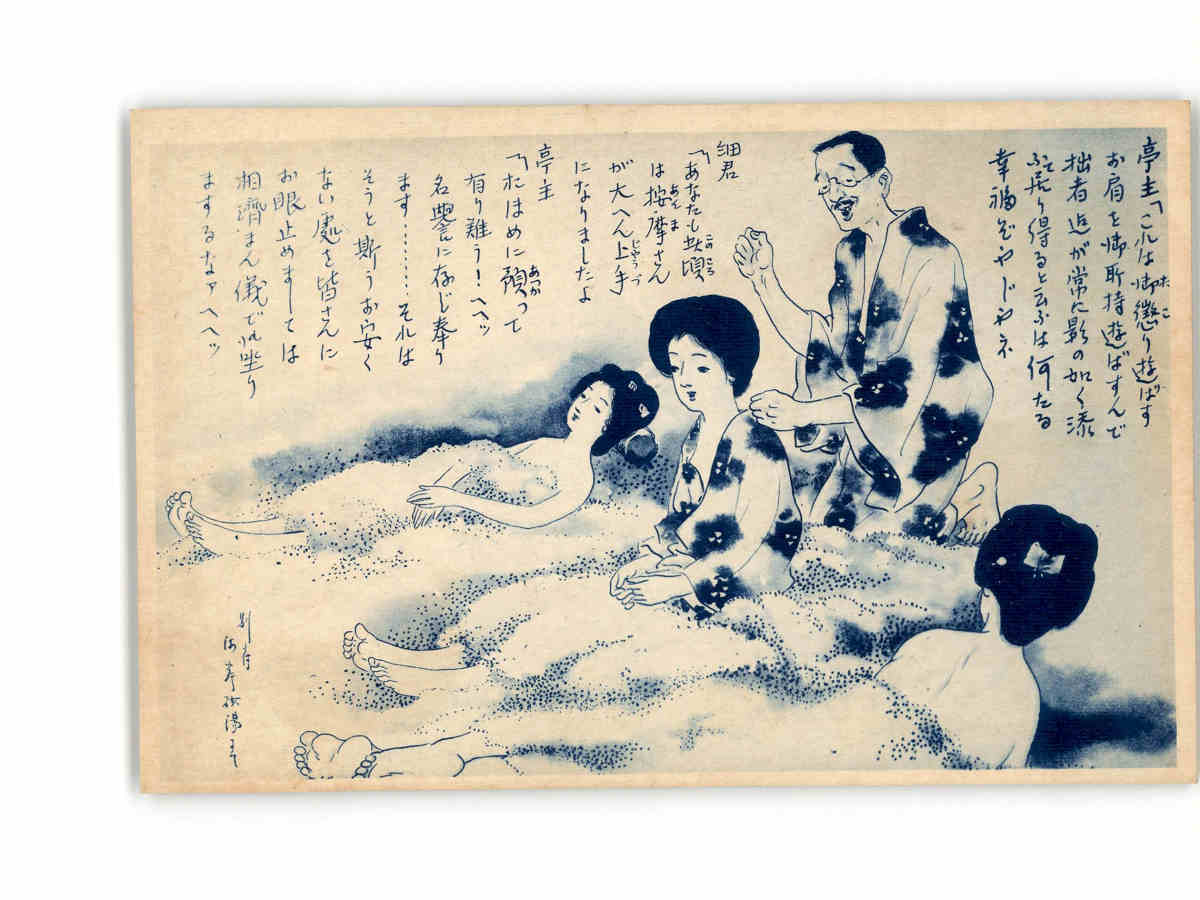 亭主「これは御懲り遊ばす
お肩を御取持遊ばすんで
拙者迄が常に影の如く添
ふて居り得ると云ふは何たる
幸福ぞやじやネ
細君
「あなたも此頃
は按摩さん
が大へん上手
になりましたよ
亭主
「おほめに預って
有り難う!ヘヘッ
名譽に存じ奉り
ます………それは
そうと斯うお安く
ない處を皆さんに
お眼止めましては
相濟まん儀で坐り
まするなァヘヘッ
別府
海岸砂湯にて